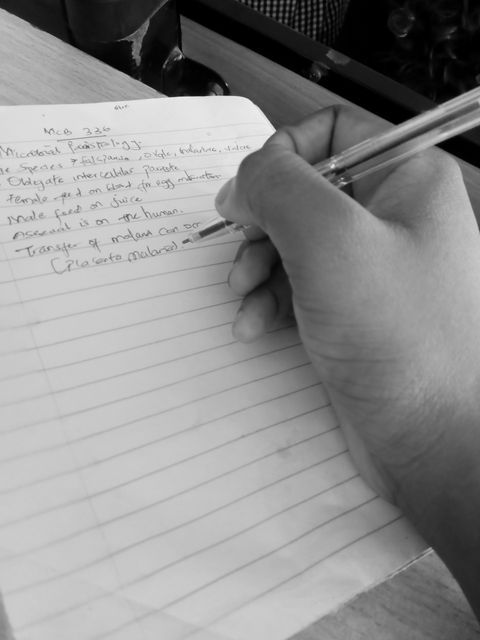 MCB 336
Microbial
Species falciparum, Ovale, malariae, vivax
Obligate intercellular parasite
female feed on blood for egg maturation
Male feed on juice
Asexual is on the human.
Transfer of malaria can occ
(Placenta malaria)